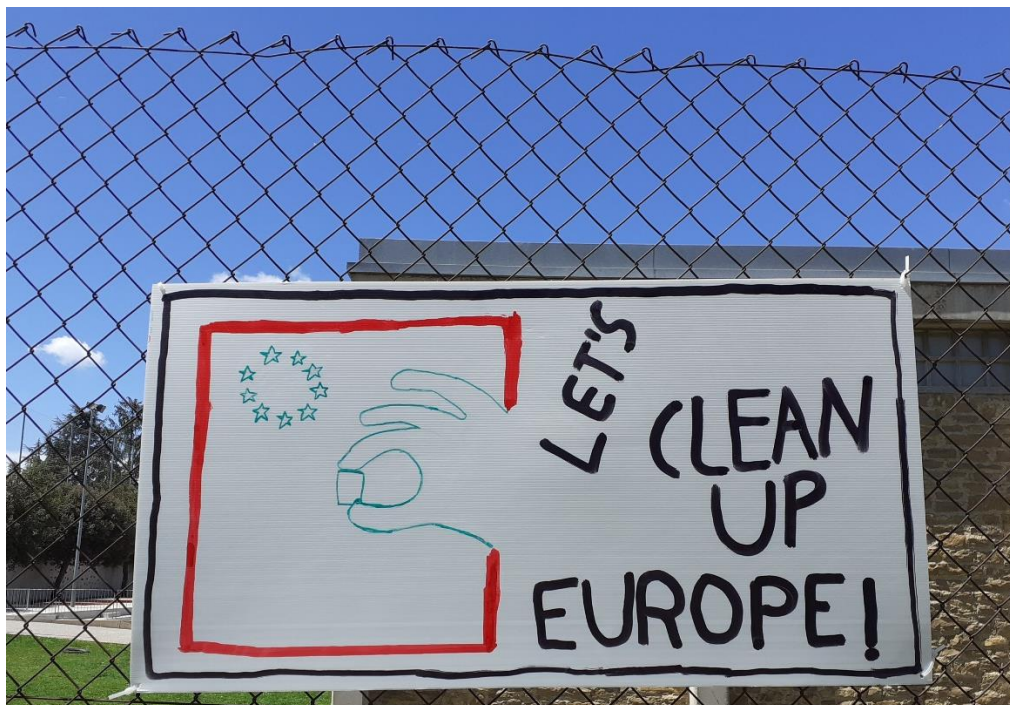 LET'S
CLEAN
UP
EUROPE!